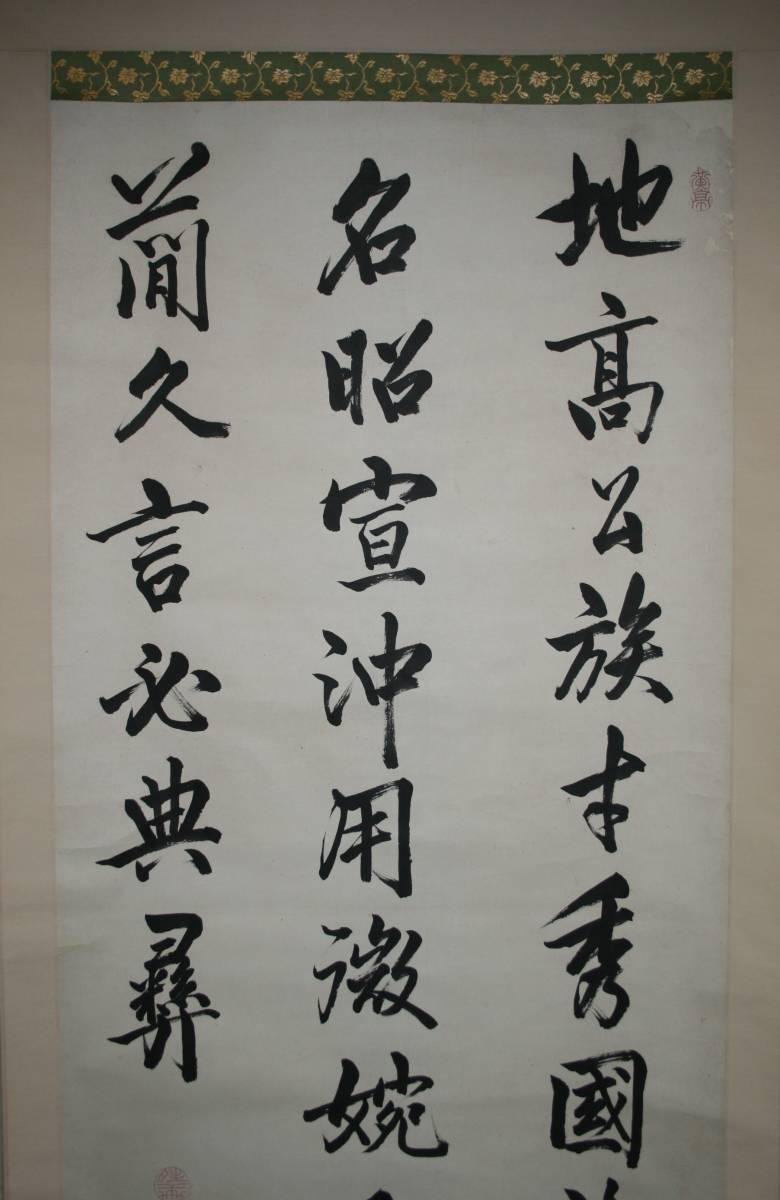 地高公族才秀國
名昭宣沖用微婉
簡久言必典彝